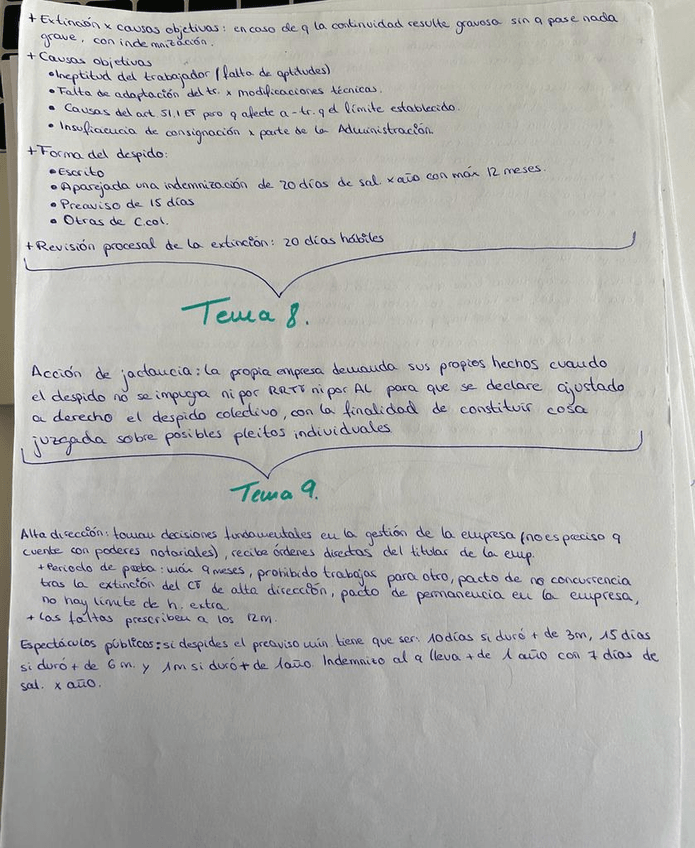 + Extinción x causas objetivas: en caso de q la continuidad resulte gravosa sin q pase nada
grave, con indemnización.
+ Causas objetivas
• Ineptitud del trabajador (falta de aptitudes)
• Falta de adaptación del tr. x modificaciones técnicas.
• Causas del art 51.1 ET pero q afecte a - tr. q el límite establecido.
• Insuficiencia de consignación x parte de la Administración.
+ Forma del despido:
• Escrito
• Aparejada una indemnización de 20 días de sal x año con máx 12 meses.
• Preaviso de 15 días
• Otras de C.col.
+ Revisión procesal de la extinción: 20 días hábiles
Tema 8.
Acción de jactancia: la propia empresa demanda sus propios hechos cuando
el despido no se impugna ni por RRTT ni por AL para que se declare ajustado
a derecho el despido colectivo, con la finalidad de constituir cosa
juzgada sobre posibles pleitos individuales
Tema 9.
Alta dirección: toman decisiones fundamentales en la gestión de la empresa (no es preciso q
cuente con poderes notariales), recibe órdenes directas del titular de la emp.
+ Periodo de : máx 9 meses, prohibido trabajar para otro, pacto de no concurrencia
tras la extinción del CT de alta dirección, pacto de permanencia en la empresa,
no hay límite de h. extra.
+ Las faltas prescriben a los 12m.
Espectáculos públicos: si despides el preaviso mín tiene que ser: 10 días si duró + de 3m, 15 días
si duró + de 6 m. y 1m si duró + de 1 año. Indemnizo al q lleva + de 1 año con 7 días de
sal. x año.